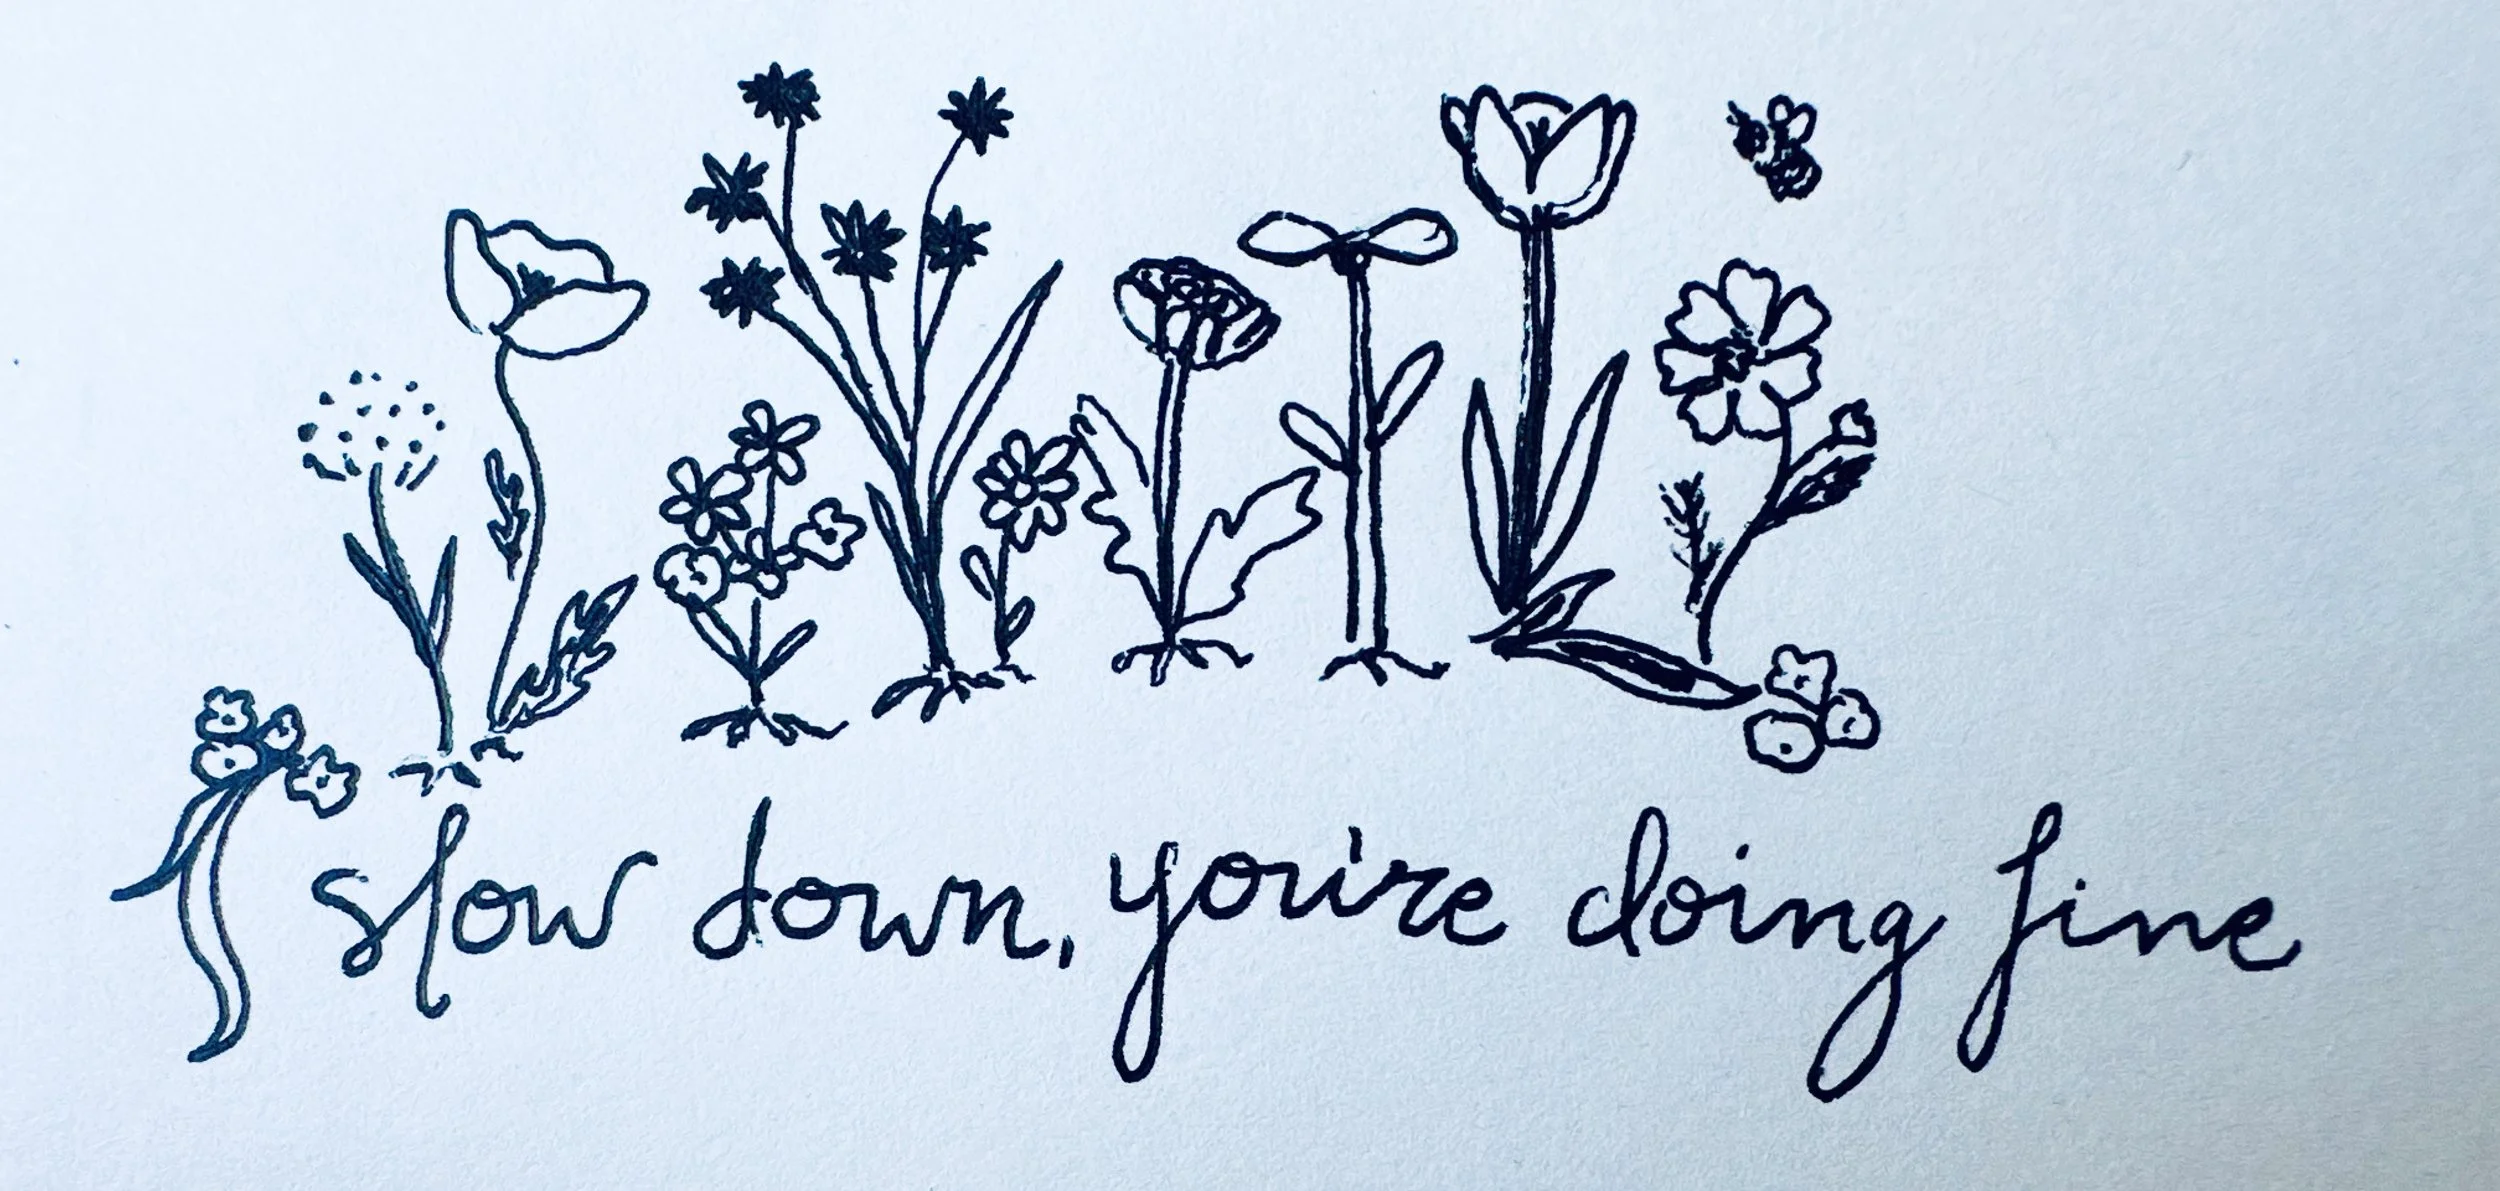 slow down, you're doing fine